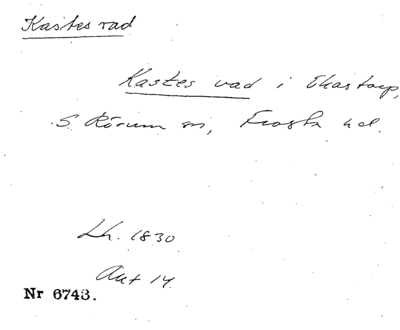 Kastes vad
Kastes vad i Ekastorp,
S. Rörum sn, Frosta hd.
Lh. 1830
Aut 14
Nr 6743.